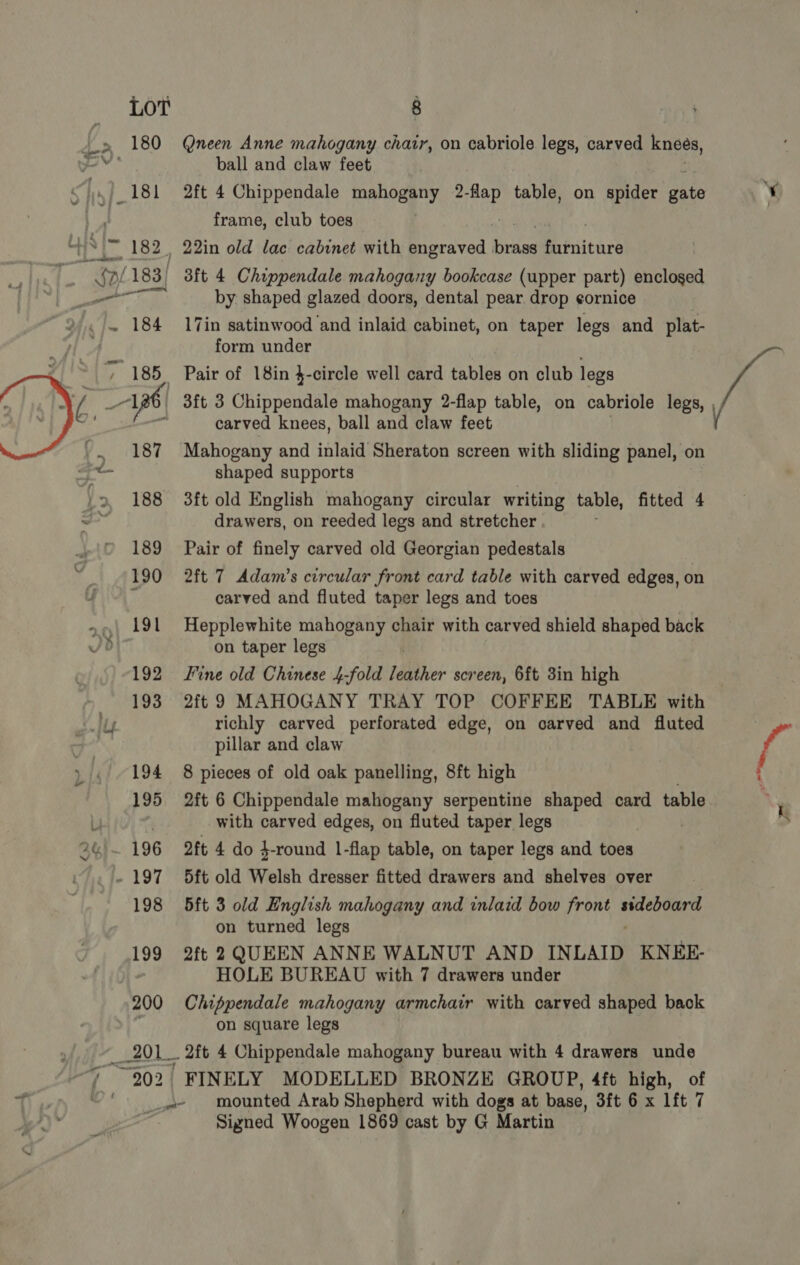 LOT 8
180 Qneen Anne mahogany chair, on cabriole legs, carved knees,
ball and claw feet
181 2ft 4 Chippendale mahogany 2-flap table, on spider gate
frame, club toes
182 22in old lac cabinet with engraved brass furniture
183 3ft 4 Chippendale mahogany bookcase (upper part) enclosed
by shaped glazed doors, dental pear drop cornice
184 17in satinwood and inlaid cabinet, on taper legs and plat-
form under
185 Pair of 18in ½-circle well card tables on club legs
186 3ft 3 Chippendale mahogany 2-flap table, on cabriole legs,
carved knees, ball and claw feet
187 Mahogany and inlaid Sheraton screen with sliding panel, on
shaped supports
188 3ft old English mahogany circular writing table, fitted 4
drawers, on reeded legs and stretcher
189 Pair of finely carved old Georgian pedestals
190 2ft 7 Adam's circular front card table with carved edges, on
carved and fluted taper legs and toes
191 Hepplewhite mahogany chair with carved shield shaped back
on taper legs
192 Fine old Chinese 4-fold leather screen, 6ft 3in high
193 2ft 9 MAHOGANY TRAY TOP COFFEE TABLE with
richly carved perforated edge, on carved and fluted
pillar and claw
194 8 pieces of old oak panelling, 8ft high
195 2ft 6 Chippendale mahogany serpentine shaped card table
with carved edges, on fluted taper legs
196 2ft 4 do ½-round 1-flap table, on taper legs and toes
197 5ft old Welsh dresser fitted drawers and shelves over
198 5ft 3 old English mahogany and inlaid bow front sideboard
on turned legs
199 2ft 2 QUEEN ANNE WALNUT AND INLAID KNEE-
HOLE BUREAU with 7 drawers under
200 Chippendale mahogany armchair with carved shaped back
on square legs
201 2ft 4 Chippendale mahogany bureau with 4 drawers unde
202 FINELY MODELLED BRONZE GROUP, 4ft high, of
mounted Arab Shepherd with dogs at base, 3ft 6 x 1ft 7
Signed Woogen 1869 cast by G Martin